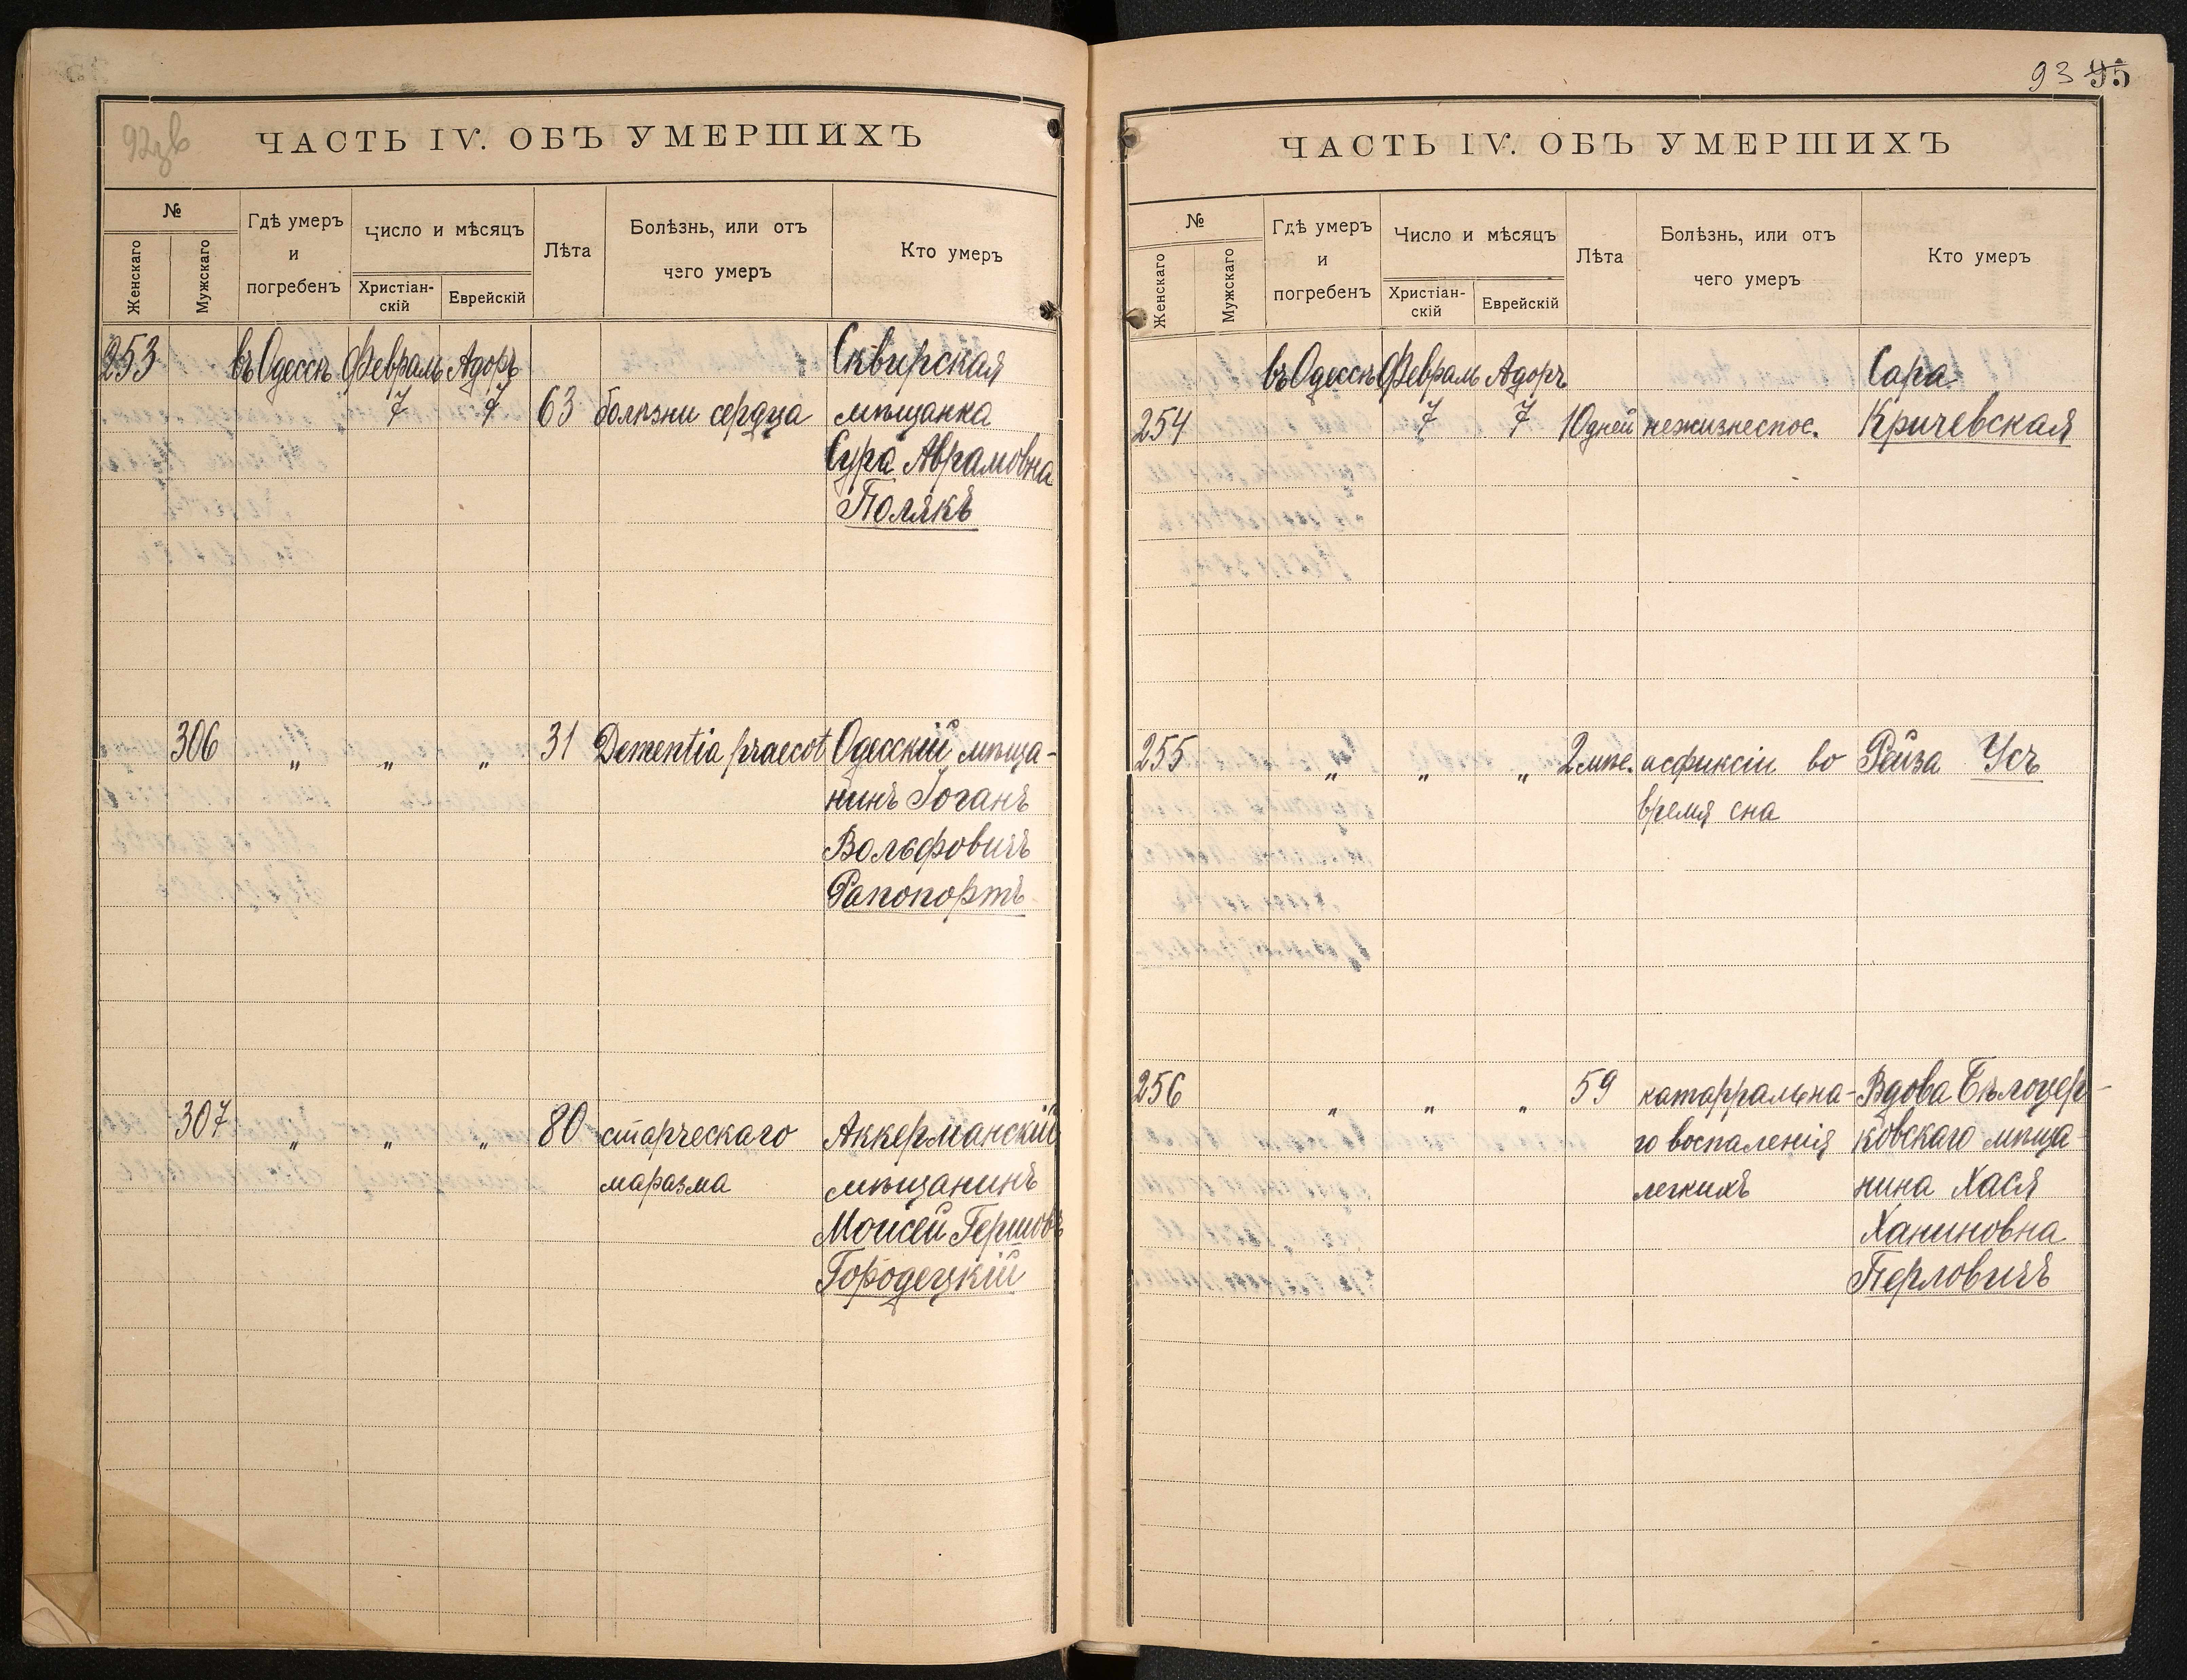 92зв
ЧАСТЬ IV. ОБЪ УМЕРШИХЪ
№
Женскаго
Мужскаго
Гдѣ умеръ
и
погребенъ
Число и мѣсяцъ
Христіан-
скій
Еврейскій
Лѣта
Болѣзнь, или отъ
чего умеръ
Кто умеръ
253 въ Одессѣ Февраль Адоръ Сквирская
7 7 63 болѣзни сердца мѣщанка
Сура Аврамовна
Полякъ
306 „ „ „ 31 Dementia praecot Одесскій мѣща-
нинъ Іоганъ
Вольфовичъ
Рапопортъ
307 „ „ „ 80 старческаго Аккерманскій
маразма мѣщанинъ
Моисей Гершовъ
Городецкій
93 95
ЧАСТЬ IV. ОБЪ УМЕРШИХЪ
№
Женскаго
Мужскаго
Гдѣ умеръ
и
погребенъ
Число и мѣсяцъ
Христіан-
скій
Еврейскій
Лѣта
Болѣзнь, или отъ
чего умеръ
Кто умеръ
въ Одессѣ Февраль Адоръ Сара
254 7 7 10 дней нежизнеспос. Кричевская
255 „ „ „ 2 мѣс. асфиксіи во Рейза Усъ
время сна
256 „ „ „ 59 катарральна- Вдова Бѣлоцер-
го воспаленія ковскаго мѣща-
легкихъ нина Хася
Ханиновна
Перловичъ